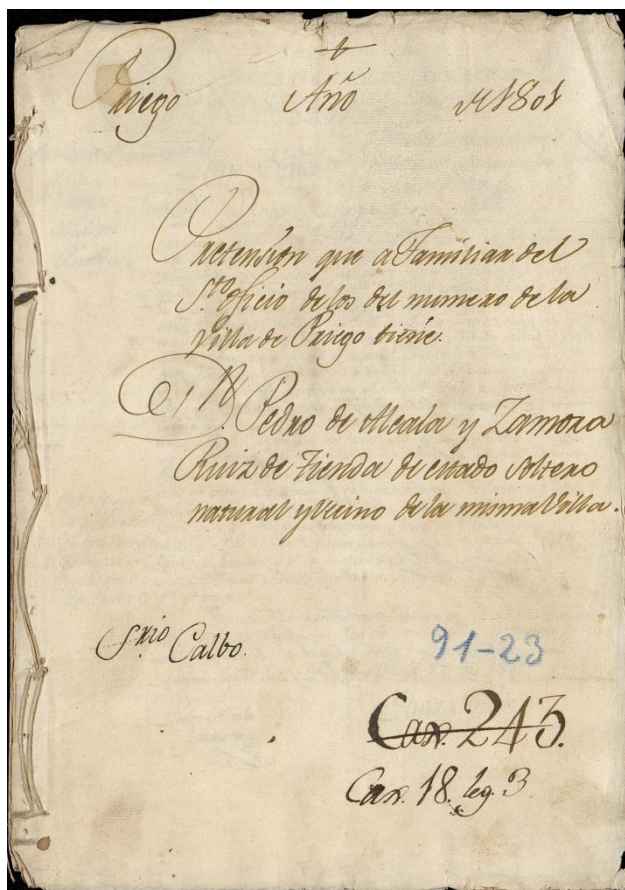 +
Priego Año de 1801
Pretension que a Familiar del
Sto. oficio de los del numero de la
Villa de Priego tiene.
Dn. Pedro de Alcala y Zamora
Ruiz de Tienda de estado soltero
natural y vecino de la misma Villa.
Srio Calbo.
91-23
Cax. 243.
Cax. 18. leg. 3